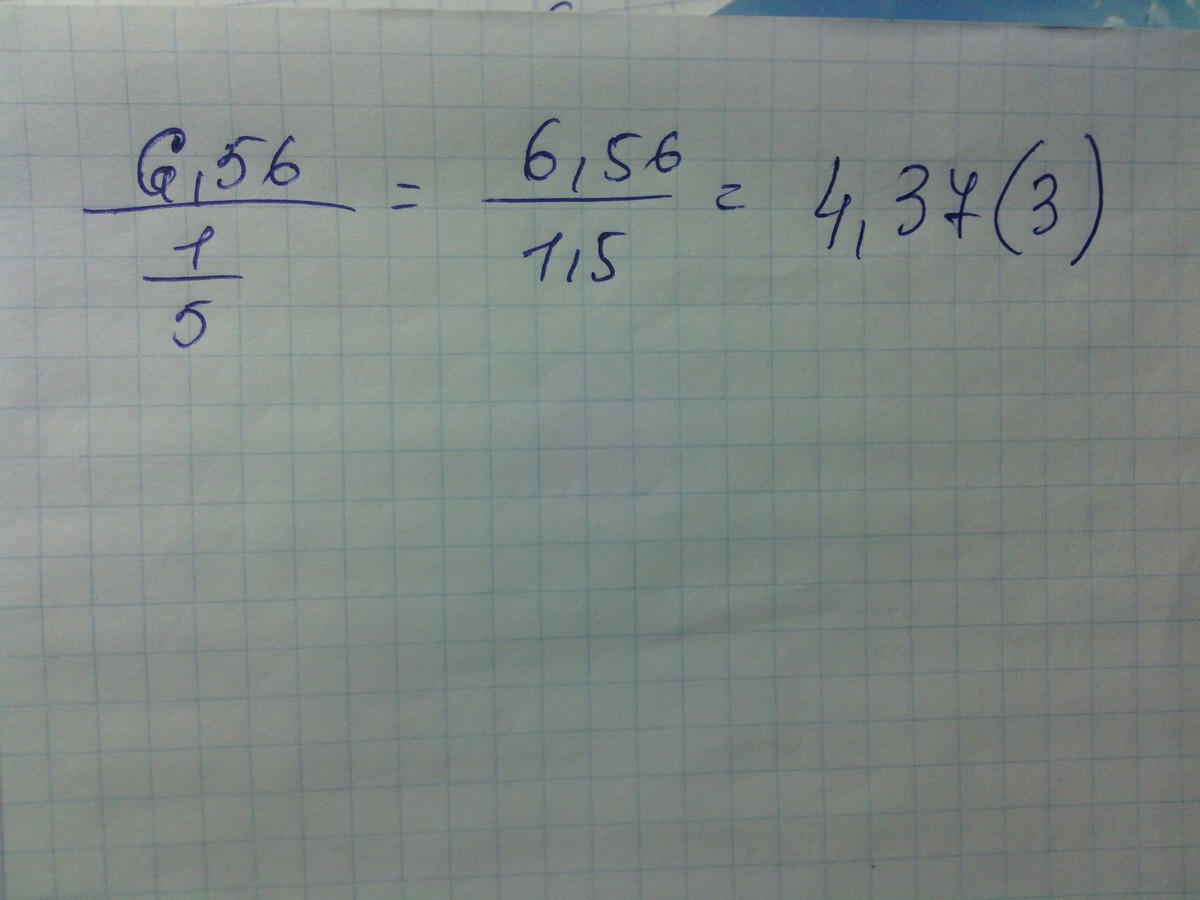 6,56 / (1/5) = 6,56 / 1,5 = 4,37(3)